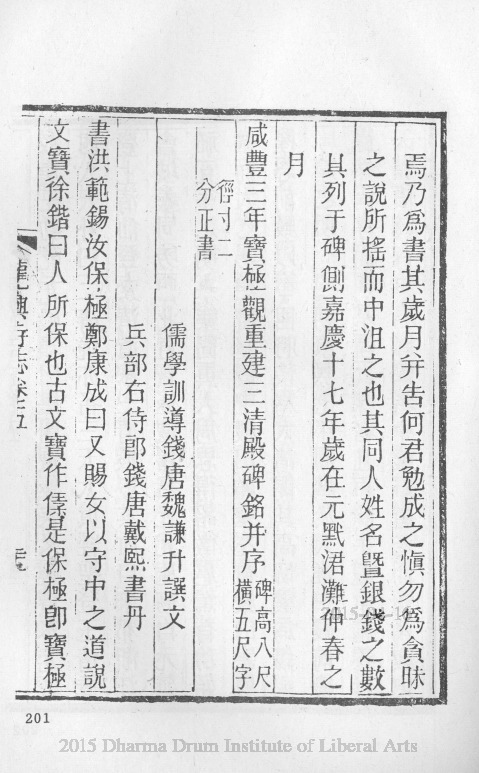 焉乃爲書其歲月幷告何君勉成之愼勿爲貪昧
之說所搖而中沮之也其同人姓名曁銀錢之數
具列于碑側嘉慶十七年歲在元黓涒灘仲春之
月
咸豐三年寶極觀重建三清殿碑銘并序碑高八尺
橫五尺字
徑寸二
分正書
儒學訓導錢唐魏謙升譔文
兵部右侍郎錢唐戴熙書丹
書洪範錫汝保極鄭康成曰又賜女以守中之道說
文寶徐鍇曰人所保也古文寶作𠊻是保極卽寶極
龍興寺志卷五
201
2015 Dharma Drum Institute of Liberal Arts